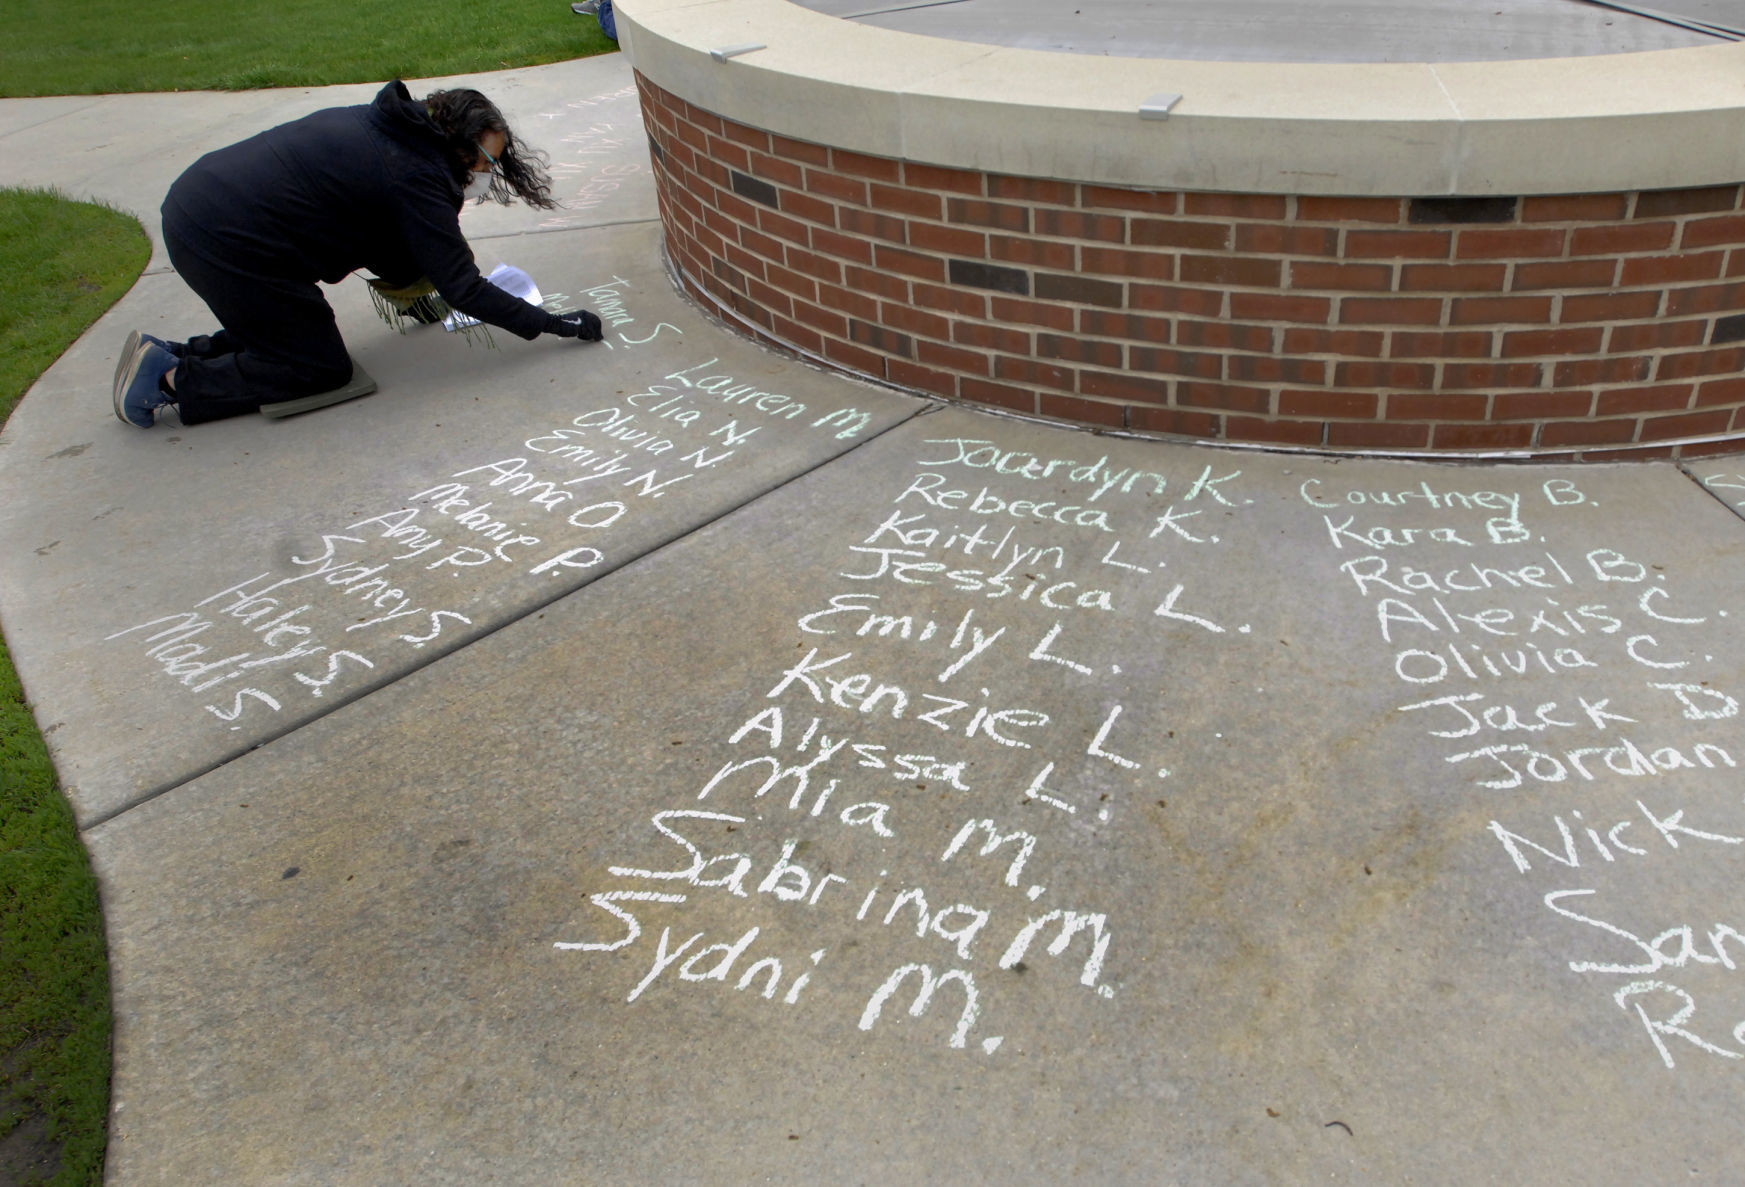 Tamara S.
Lauren M.
Elia N.
Olivia N.
Emily N.
Anna O
Melanie P.
Amy P.
Sydney S.
Haley S.
Madi S.
Joardyn K.
Rebecca K.
Kaitlyn L.
Jessica L.
Emily L.
Kenzie L.
Alyssa L.
Mia M.
Sabrina M.
Sydni M.
Courtney B.
Kara B.
Rachel B.
Alexis C.
Olivia C.
Jack D
Jordan
Nick